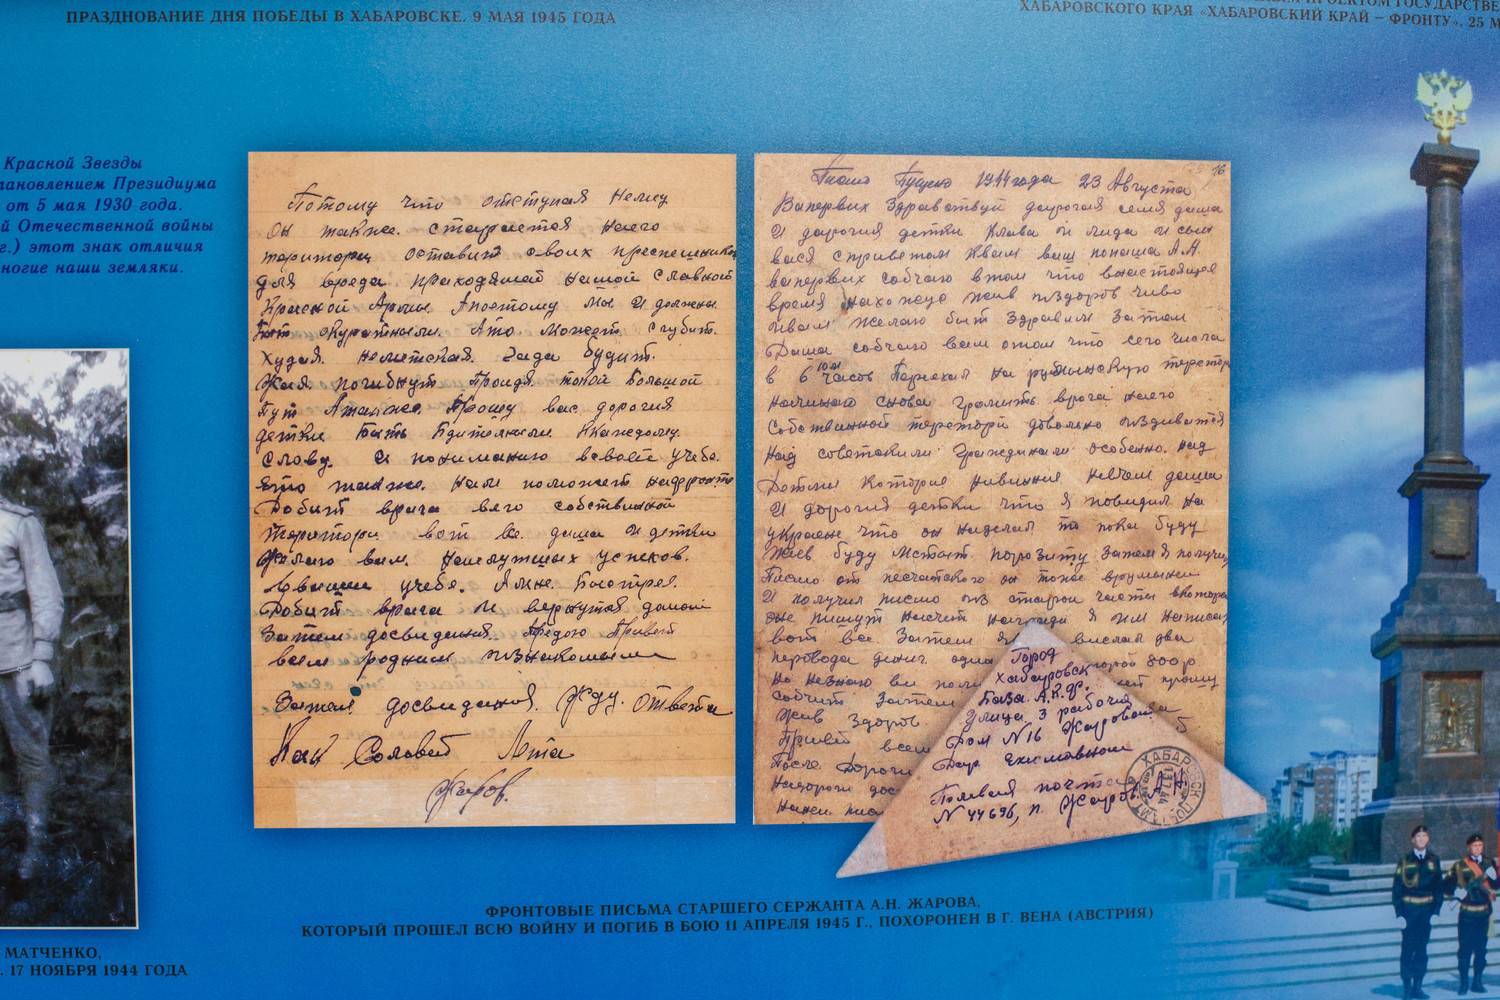 ПРАЗДНОВАНИЕ ДНЯ ПОБЕДЫ В ХАБАРОВСКЕ. 9 МАЯ 1945 ГОДА
ХАБАРОВСКОГО КРАЯ «ХАБАРОВСКИЙ КРАЙ – ФРОНТУ». 25 М
Красной Звезды
тановлением Президиума
от 5 мая 1930 года.
й Отечественной войны
г.) этот знак отличия
ногие наши земляки.
Потому что отступая Немец
Он также старается на его
територии оставит своих
для вреда нашой Славной
Красной Армии Апоетому мы и должны
быт Ато может сгубит.
Худая Неметская гада будит.
Жаль погибнут Пройдя такой Большой
Пут Атакже Прошу вас дорогия
детки быть бдительными каждому
слову. и всвоей учебе.
Ето также нам поможет нафронте
добит врага вего собственной
територи вот все даша и детки
Желаю вам наилутших успехов.
вашей учебе. Амне быстрее
Добит врага и вернутся домой
Затем досвидения Передаю Привет
всем родным изнакомым
Затем досвидания. Жду. Ответа
Как Соловей Лета
Жаров.
16
Писмо Пущено 1944 года 23 Августа
Вапервих Здравствуй дорогая семя даша
и дорогия детки Клава и лида и сын
вася с приветом квам ваш папаша А.Н.
вапервих собчаю втом что внастоящее
время нахожус жив издоров чиво
ивам желаю быт Здравим Затем
Даша собчаю вам отом что сего числа
в 6 часов Переехал на румынскую теретор
начинаю снова громить врага наего
Собственной теретори довольно издиватся
над советскими гражданами особенно над
Детями которые невиния невчем даша
и дорогия детки что я повидал на
украене что он наделал то пока буду
Жив буду мстит паразиту Затем я получил
Писмо от
и получил писмо из старой части вкотором
оне пишут насчет награды я им написал
вот все Затем я выслал два
перевода денег один 800 р
Но незнаю вы прошу
собчит Затем
Жив Здоров
Привет всем
После
Город
Хабаровск
База А.К.Ф.
Улица 3 рабочия
Дом №16 Жаровой
Дар Екимавной
Полевая почта
N 44696, п. Жаров А Н
ХАБАРОВСК
ФРОНТОВЫЕ ПИСЬМА СТАРШЕГО СЕРЖАНТА А.Н. ЖАРОВА,
КОТОРЫЙ ПРОШЕЛ ВСЮ ВОЙНУ И ПОГИБ В БОЮ 11 АПРЕЛЯ 1945 Г., ПОХОРОНЕН В Г. ВЕНА (АВСТРИЯ)
МАТЧЕНКО,
. 17 НОЯБРЯ 1944 ГОДА